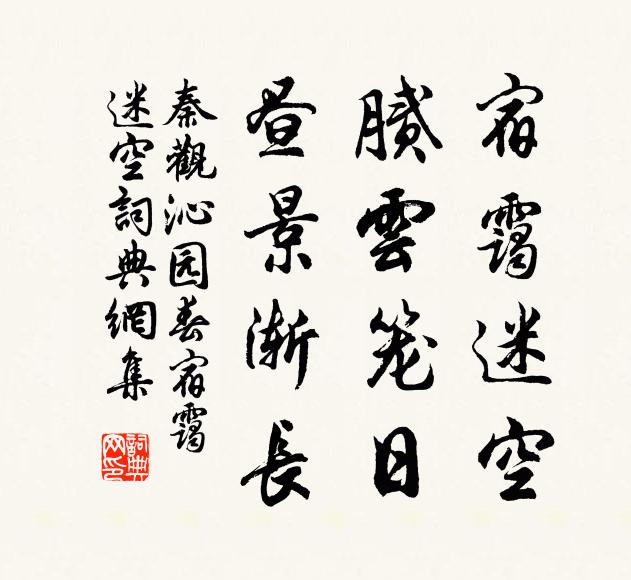 宿靄迷空
膩雲笼日
昼景漸長
秦觀沁园春宿靄
迷空詞典網集
詞典
网印